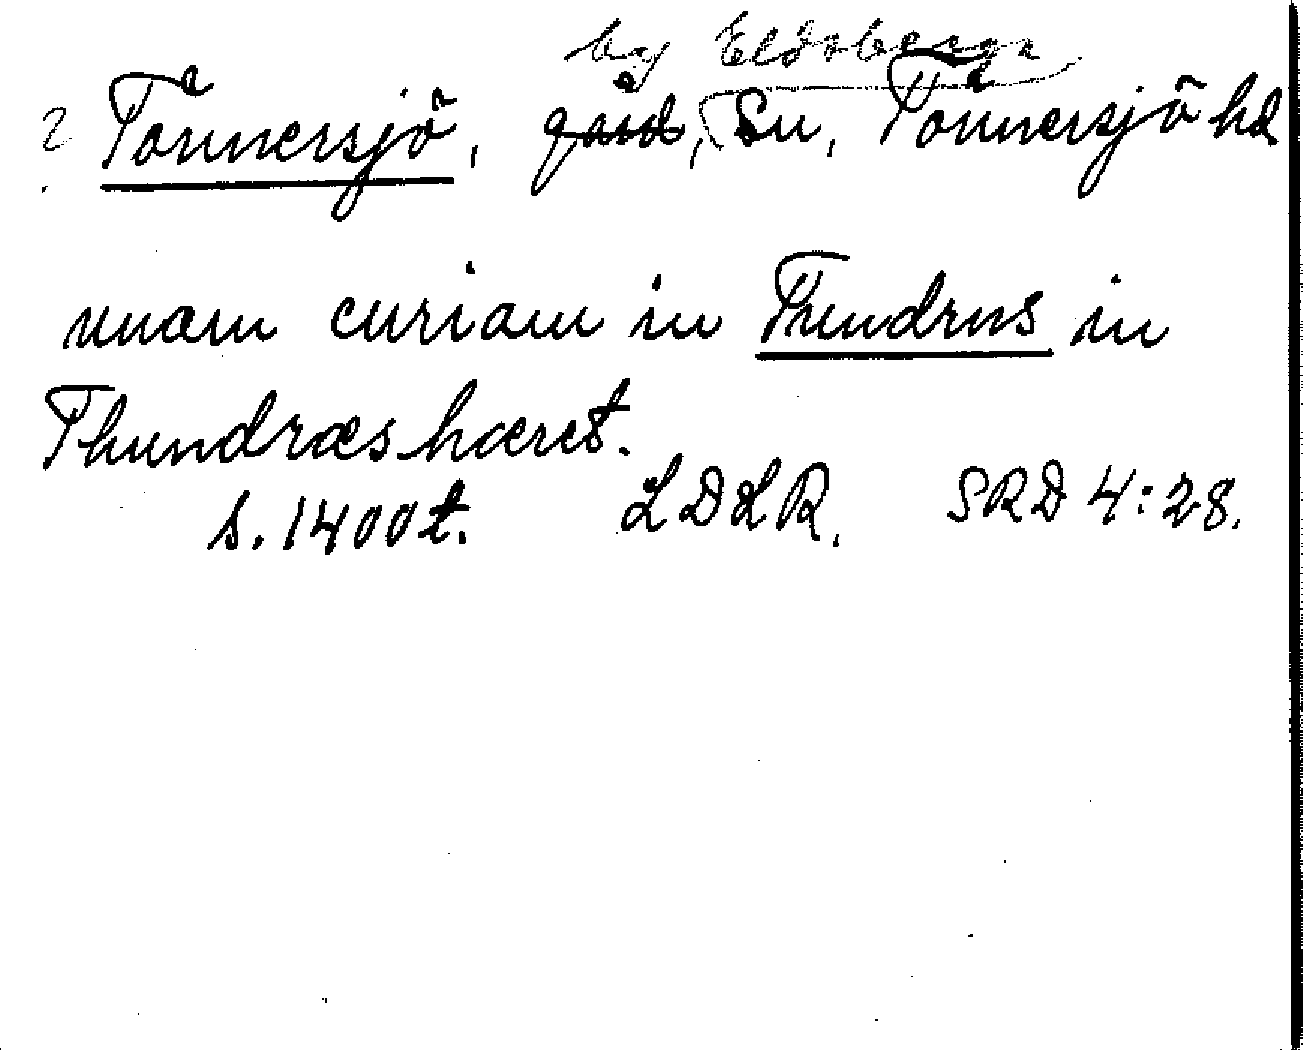 by Eldsberga
? Tönnersjö, gård, Sn, Tönnersjö hd
unam curiam in Thundrus in
Thundræshæret.
s. 1400t. LDLR. SRD 4:28.